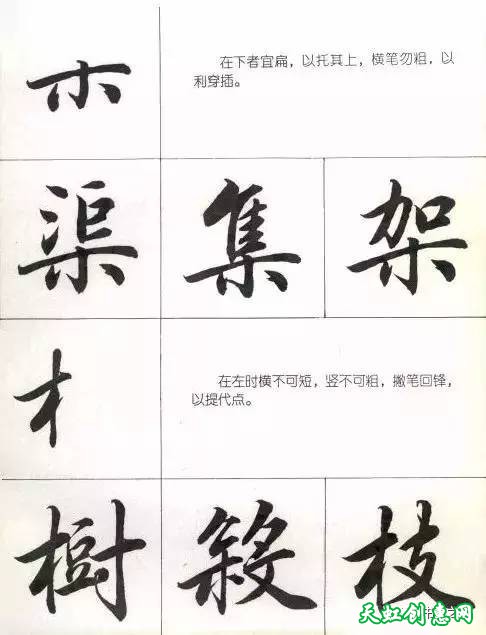 木
在下者宜扁，以托其上，横笔勿粗，以
利穿插。
渠 集 架
木
在左时横不可短，竖不可粗，撇笔回锋，
以提代点。
樹 枝
天虹创意网